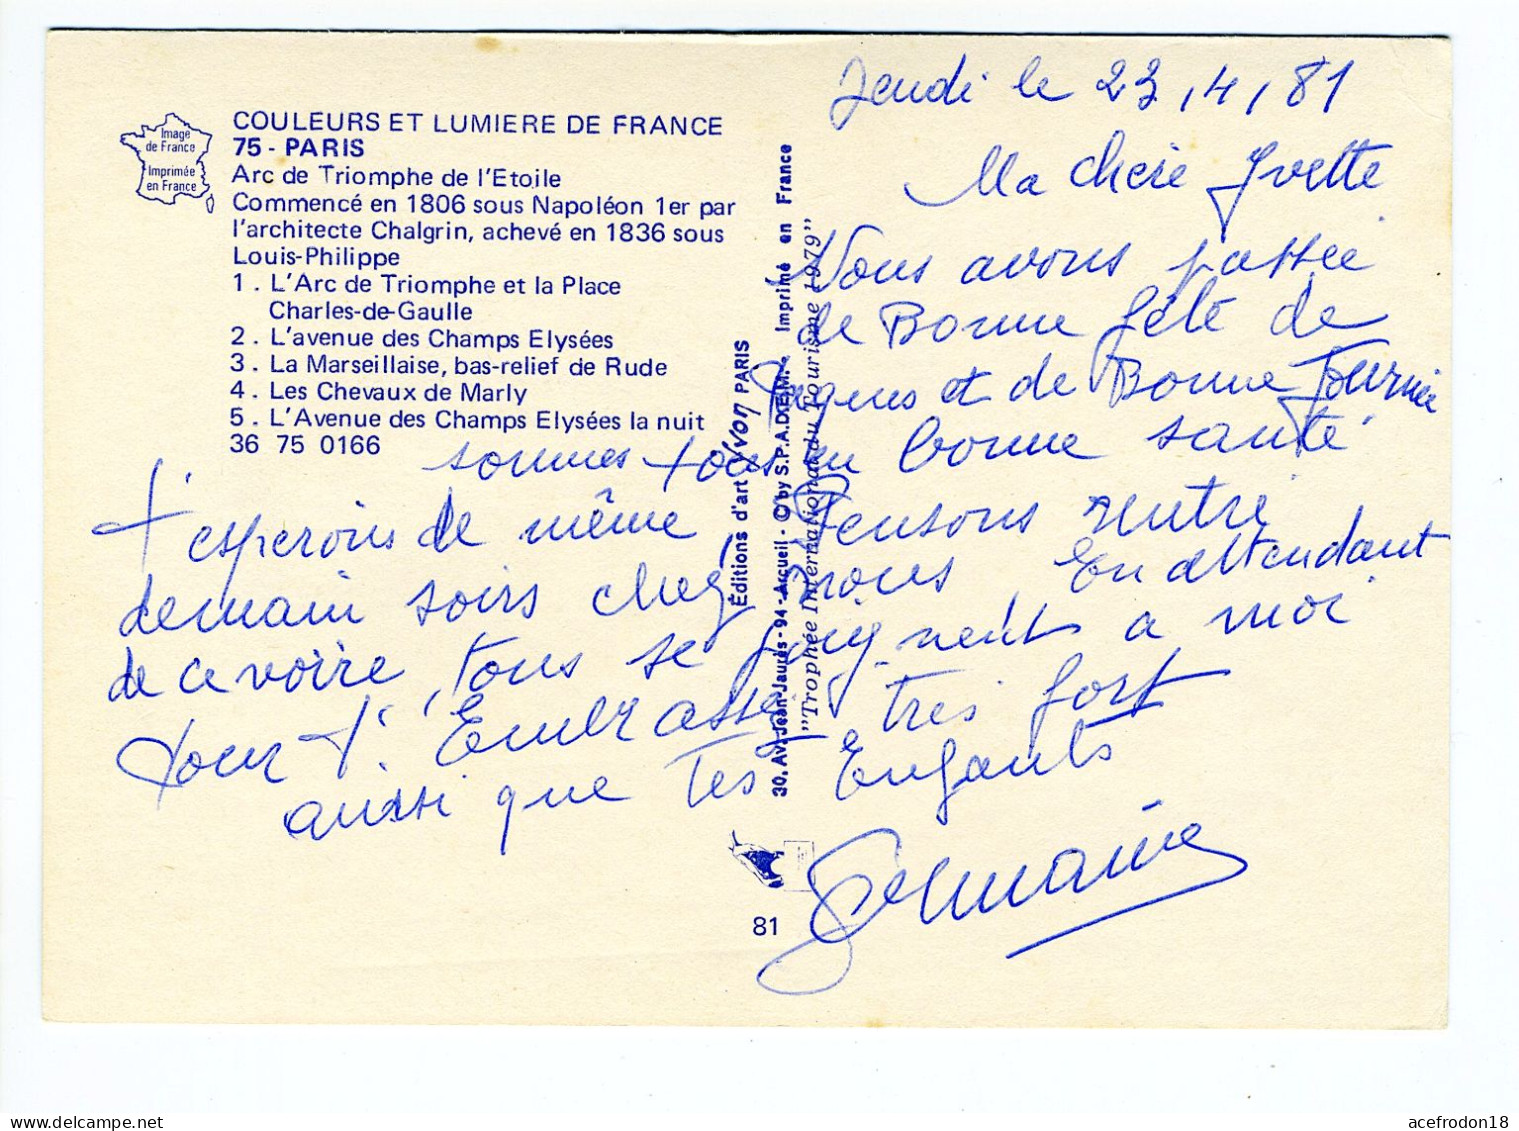 Image
de France
Imprimée
en France
COULEURS ET LUMIERE DE FRANCE
75 - PARIS
Arc de Triomphe de l'Etoile
Commencé en 1806 sous Napoléon 1er par
l'architecte Chalgrin, achevé en 1836 sous
Louis-Philippe
1. L'Arc de Triomphe et la Place
Charles-de-Gaulle
2. L'avenue des Champs Elysées
3. La Marseillaise, bas-relief de Rude
4. Les Chevaux de Marly
5. L'Avenue des Champs Elysées la nuit
36 75 0166
Éditions d'art Yvon PARIS
30, Av. Jean-Jaurès - 94 - Arcueil - © by S.P.A.D.E.M. - Imprimé en France
"Trophée International du Tourisme 1979"
81
Jeudi le 23,4,81
Ma chère Yvette
Nous avons passée
de Bonne fête de
Paques et de Bonne Journée
sommes tous en bonne santé
t'esperons de même, Pensons rentré
demain soirs chez nous, En attendant
de ce voire, tous se joignent a moi
pour t'Embrassez très fort
aussi que Tes Enfants
Germaine
acefrodon18